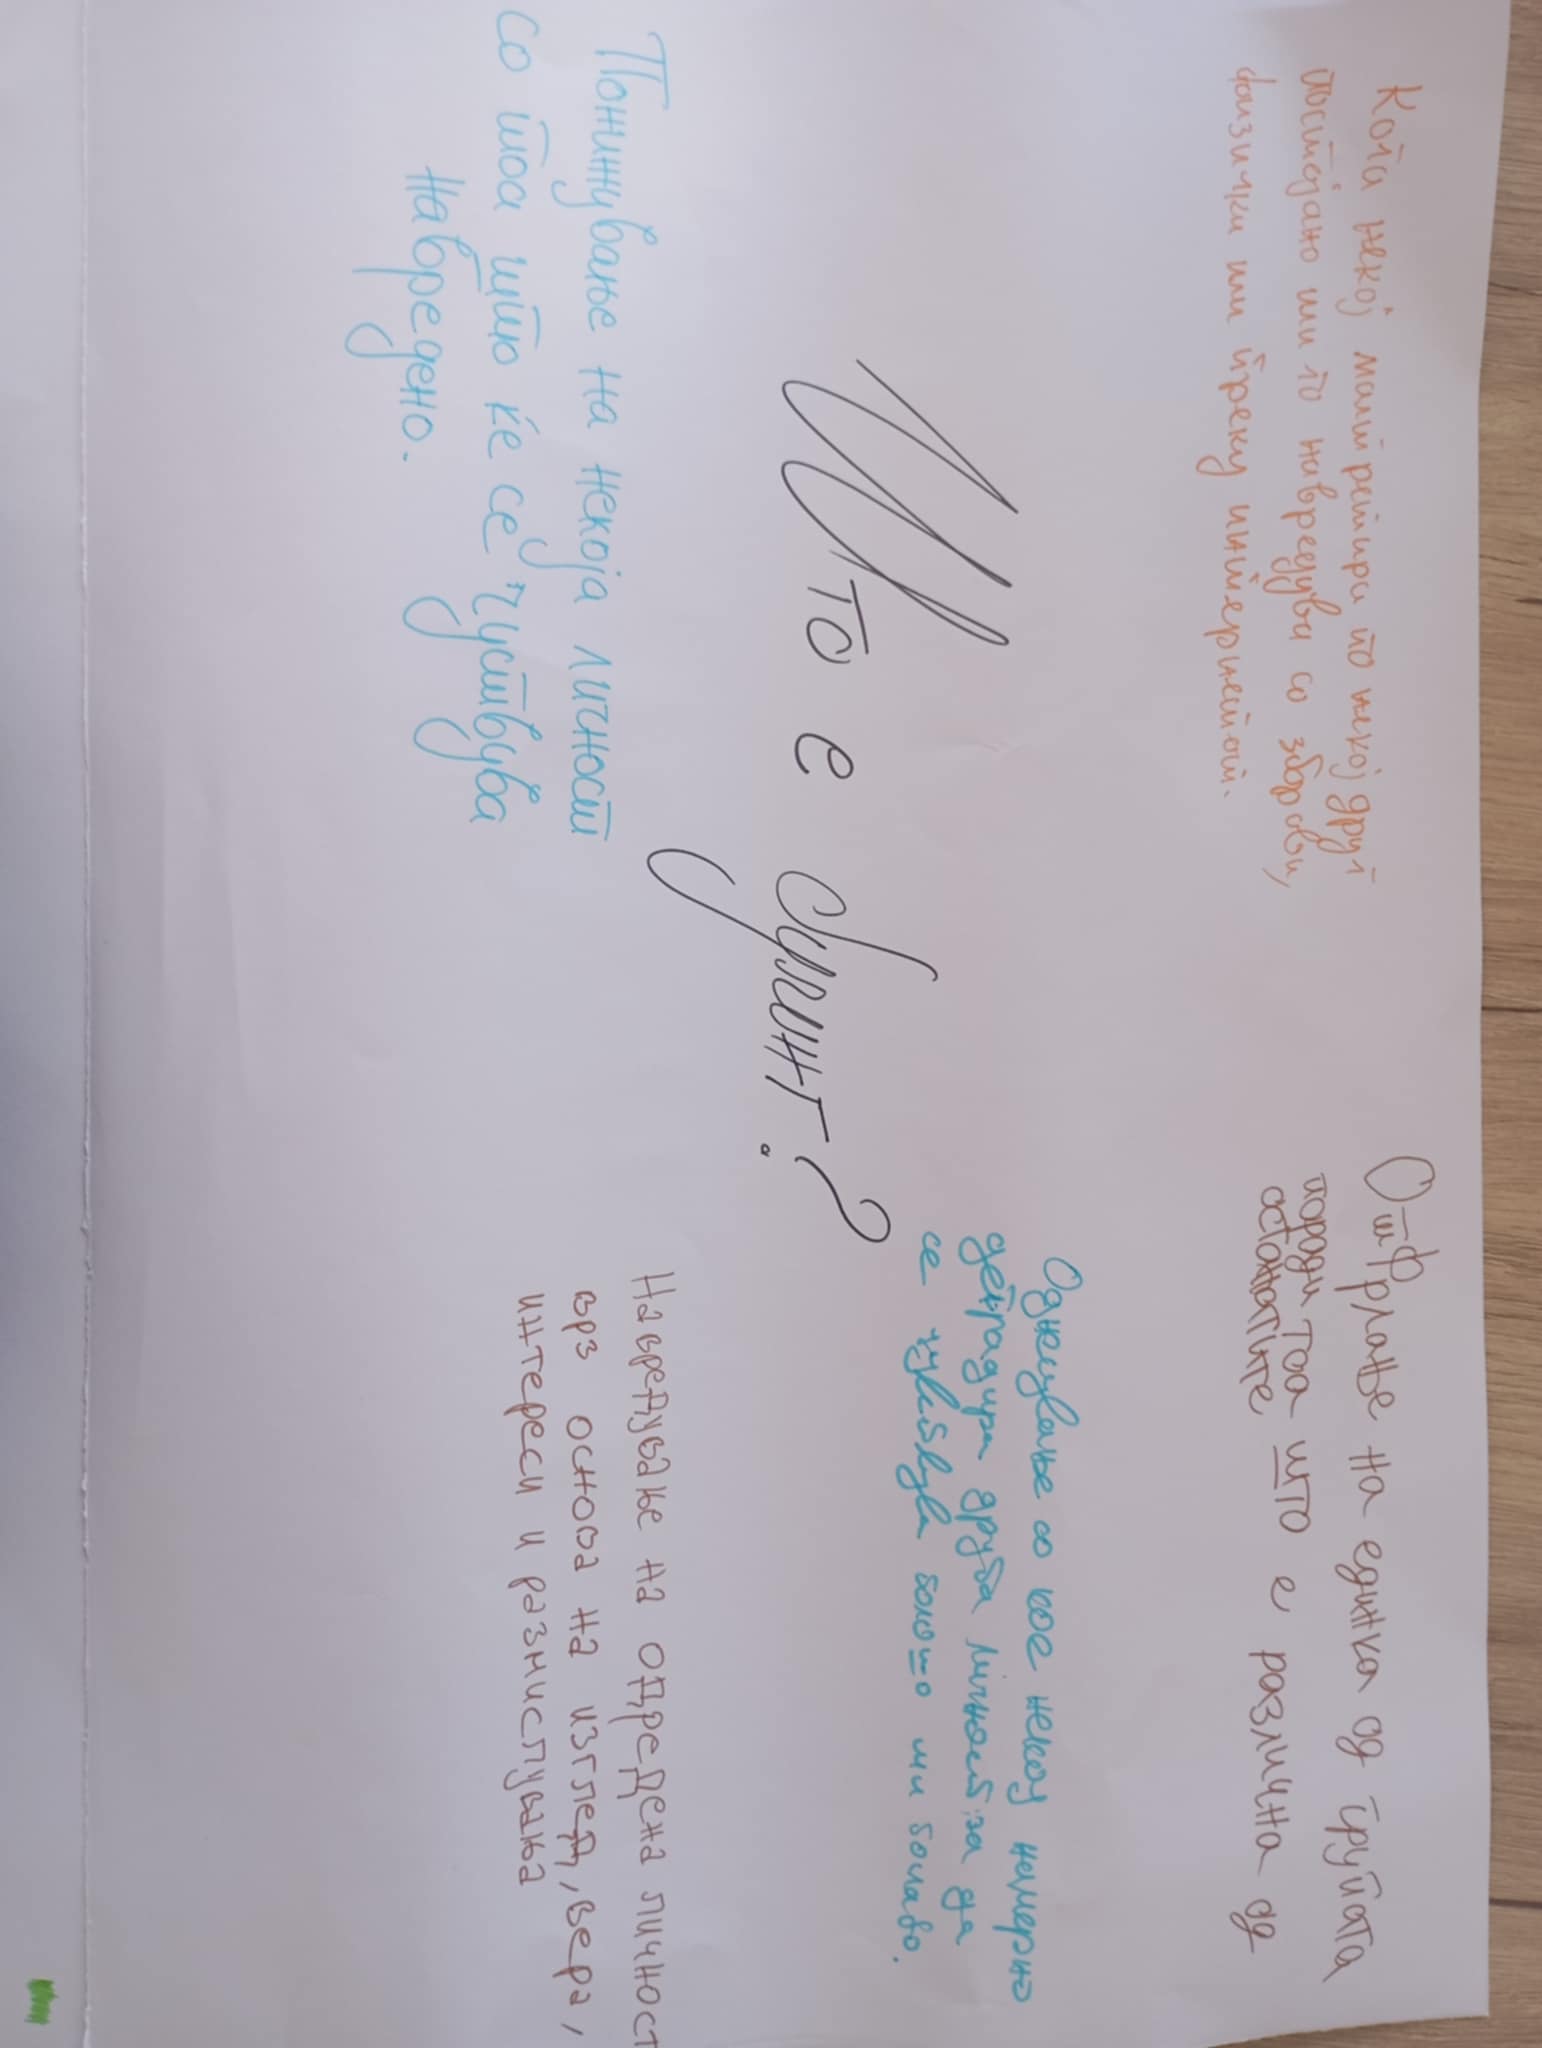 Кога некој малтретира по некој друг
постојано или го навредува со зборови,
физички или преку интернетот.
Отфрлање на единка од групата
поради тоа што е различна од
останатите
Што е булинг?
Однесување со кое некој намерно
деградира друга личност за да
се чувствува лошо или болаво.
Понижување на некоја личност
со тоа што ќе се чуствува
навредено.
Навредување на одредена личност
врз основа на изглед, вера,
интереси и размислувања